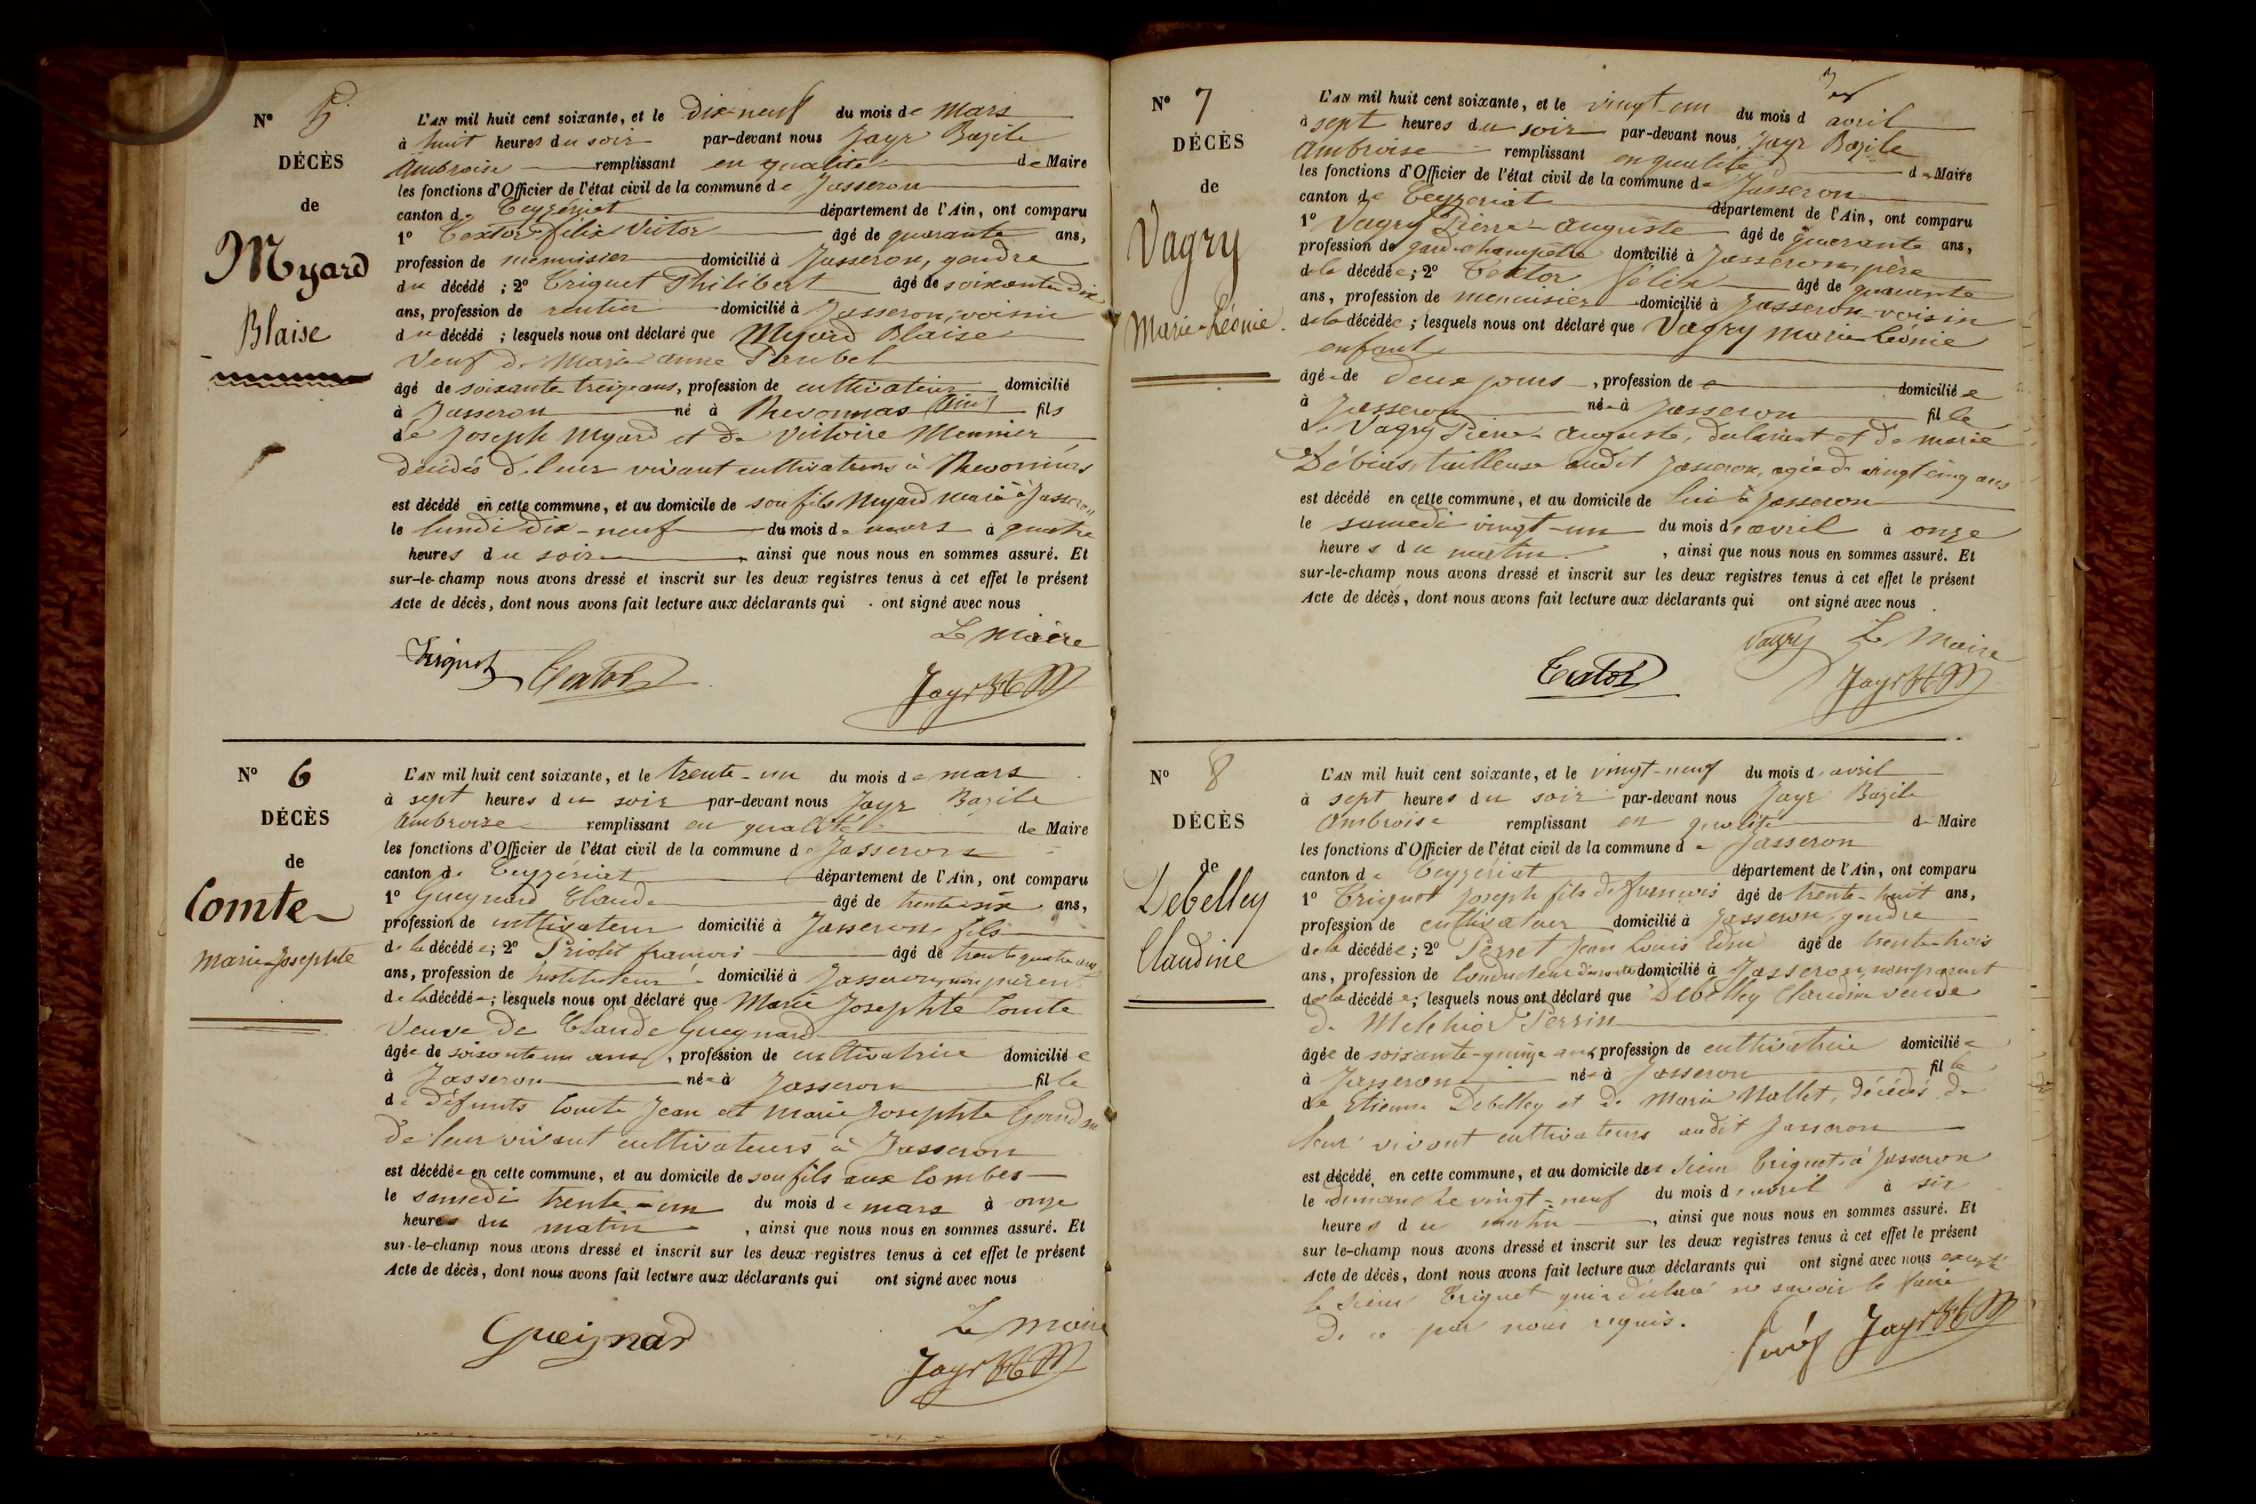 N° 5
DÉCÈS
de
Myard
Blaise
L'AN mil huit cent soixante, et le Dix-neuf du mois de Mars
à huit heures du soir par-devant nous Jayr Bazile
Ambroise remplissant en qualité de Maire
les fonctions d'Officier de l'état civil de la commune de Jasseron
canton de Ceyzériat département de l'Ain, ont comparu
1° Textor félix Victor âgé de quarante ans,
profession de menuisier domicilié à Jasseron, gendre
du décédé ; 2° Triquet Philibert âgé de soixante dix
ans, profession de rentier domicilié à Jasseron, voisin
du décédé ; lesquels nous ont déclaré que Myard Blaise
Veuf de Marie Anne
âgé de soixante treize ans, profession de cultivateur domicilié
à Jasseron né à Revonnas (Ain) fils
de Joseph Myard et de Victoire Meunier
décédés de leur vivant cultivateurs à Revonnas
est décédé en cette commune, et au domicile de son fils Myard marié à Jasseron
le lundi dix-neuf du mois de mars à quatre
heures du soir , ainsi que nous nous en sommes assuré. Et
sur-le-champ nous avons dressé et inscrit sur les deux registres tenus à cet effet le présent
Acte de décès, dont nous avons fait lecture aux déclarants qui ont signé avec nous
Le Maire
Triquet Textor
Jayr
N° 6
DÉCÈS
de
Comte
Marie-Josephte
L'AN mil huit cent soixante, et le trente-un du mois de mars
à sept heures du soir par-devant nous Jayr Bazile
Ambroise remplissant en qualité de Maire
les fonctions d'Officier de l'état civil de la commune de Jasseron
canton de Ceyzériat département de l'Ain, ont comparu
1° Gueynard Claude âgé de trente-six ans,
profession de cultivateur domicilié à Jasseron, fils
de la décédée; 2° françois âgé de trente quatre ans
ans, profession de instituteur domicilié à Jasseron, non parent
de la décédée; lesquels nous ont déclaré que Marie Josephte Comte
Veuve de Claude Gueynard
âgée de soixante un ans, profession de cultivatrice domiciliée
à Jasseron née à Jasseron fille
de défunts Comte Jean et Marie Josephte
de leur vivant cultivateurs à Jasseron
est décédée en cette commune, et au domicile de son fils aux Combes
le samedi trente-un du mois de mars à onze
heures du matin , ainsi que nous nous en sommes assuré. Et
sur-le-champ nous avons dressé et inscrit sur les deux registres tenus à cet effet le présent
Acte de décès, dont nous avons fait lecture aux déclarants qui ont signé avec nous
Le Maire
Gueignard
Jayr
N° 7
DÉCÈS
de
Vagry
Marie-Léonie
L'AN mil huit cent soixante, et le vingt-un du mois d avril
à sept heures du soir par-devant nous Jayr Bazile
Ambroise remplissant en qualité de Maire
les fonctions d'Officier de l'état civil de la commune de Jasseron
canton de Ceyzériat département de l'Ain, ont comparu
1° Vagry Pierre-Auguste âgé de quarante ans,
profession de garde champêtre domicilié à Jasseron, père
de la décédée; 2° Textor félix âgé de quarante
ans, profession de menuisier domicilié à Jasseron voisin
de la décédée; lesquels nous ont déclaré que Vagry Marie Léonie
enfant
âgée de deux jours , profession de domiciliée
à Jasseron née à Jasseron fille
de Vagry Pierre-Auguste, déclarant et de Marie
tailleuse audit Jasseron, agée de vingt cinq ans
est décédé en cette commune, et au domicile de lui à Jasseron
le samedi vingt-un du mois d avril à onze
heures du matin , ainsi que nous nous en sommes assuré. Et
sur-le-champ nous avons dressé et inscrit sur les deux registres tenus à cet effet le présent
Acte de décès, dont nous avons fait lecture aux déclarants qui ont signé avec nous
Vagry Le Maire
Textor
Jayr
N° 8
DÉCÈS
de
Debelley
Claudine
L'AN mil huit cent soixante, et le vingt-neuf du mois d avril
à sept heures du soir par-devant nous Jayr Bazile
Ambroise remplissant en qualité de Maire
les fonctions d'Officier de l'état civil de la commune de Jasseron
canton de Ceyzériat département de l'Ain, ont comparu
1° Triquet Joseph fils de françois âgé de trente-huit ans,
profession de cultivateur domicilié à Jasseron, gendre
de la décédée; 2° Perret Jean Louis âgé de trente-trois
ans, profession de Conducteur domicilié à Jasseron, non parent
de la décédée; lesquels nous ont déclaré que Debelley Claudine veuve
de Melchior Perrin
âgée de soixante-quinze ans profession de cultivatrice domiciliée
à Jasseron née à Jasseron fille
de Etienne Debelley et de Marie Mallet, décédés de
leur vivant cultivateurs audit Jasseron
est décédé en cette commune, et au domicile de sieur Triquet à Jasseron
le dimanche vingt-neuf du mois d avril à six
heures du matin , ainsi que nous nous en sommes assuré. Et
sur le-champ nous avons dressé et inscrit sur les deux registres tenus à cet effet le présent
Acte de décès, dont nous avons fait lecture aux déclarants qui ont signé avec nous excepté
le sieur Triquet qui a déclaré ne savoir le faire
de ce par nous requis.
Jayr